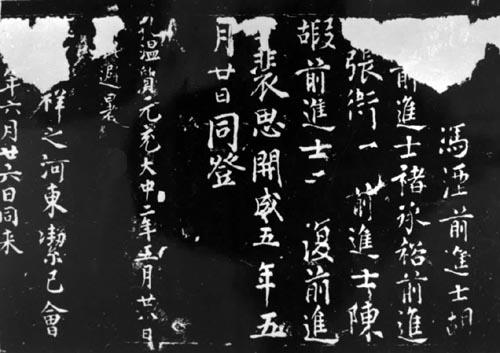 馮涯前進士胡
前進士褚承裕前進
張衛一 前進士陳
嘏前進士 復前進
裴思開成五年五
月廿日同登
温質元充大中二年五月廿八日
避暑
祥之河東潔己會
年六月廿六日同来